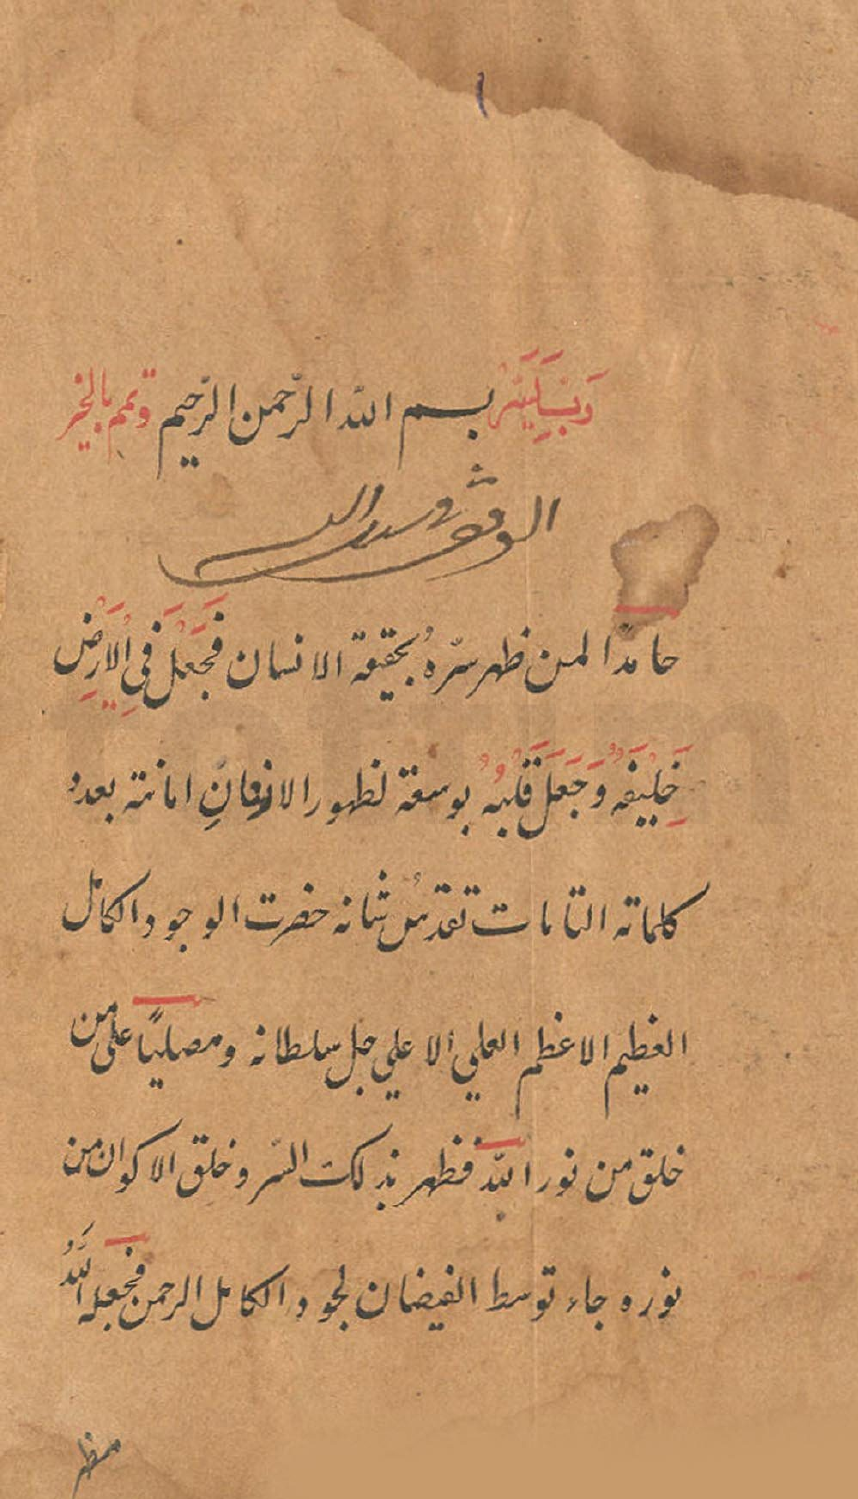 ١
رَبِّ يَسِّرْ بسم الله الرّحمن الرّحيم وتمم بالخير
حامدًا لمن ظهر سرّهُ بحقيقة الانسان فَجَعَلَ فِي الْاَرْضِ
خَلِيْفَهُ وَجَعَلَ قَلْبَهُ بوسعة لظهور الاذعانِ امانته بعدد
كلماته التامات تقدسُ شانه حضرت الوجود الكامل
العظيم الاعظم العلي الاعلي جل سلطانه ومصليًا على من
خلق من نور الله فظهر بذلك السّر وخلق الاكوان من
نوره جاء توسط الفيضان لجود الكامل الرحمن فجعله اللهُ
مظهر